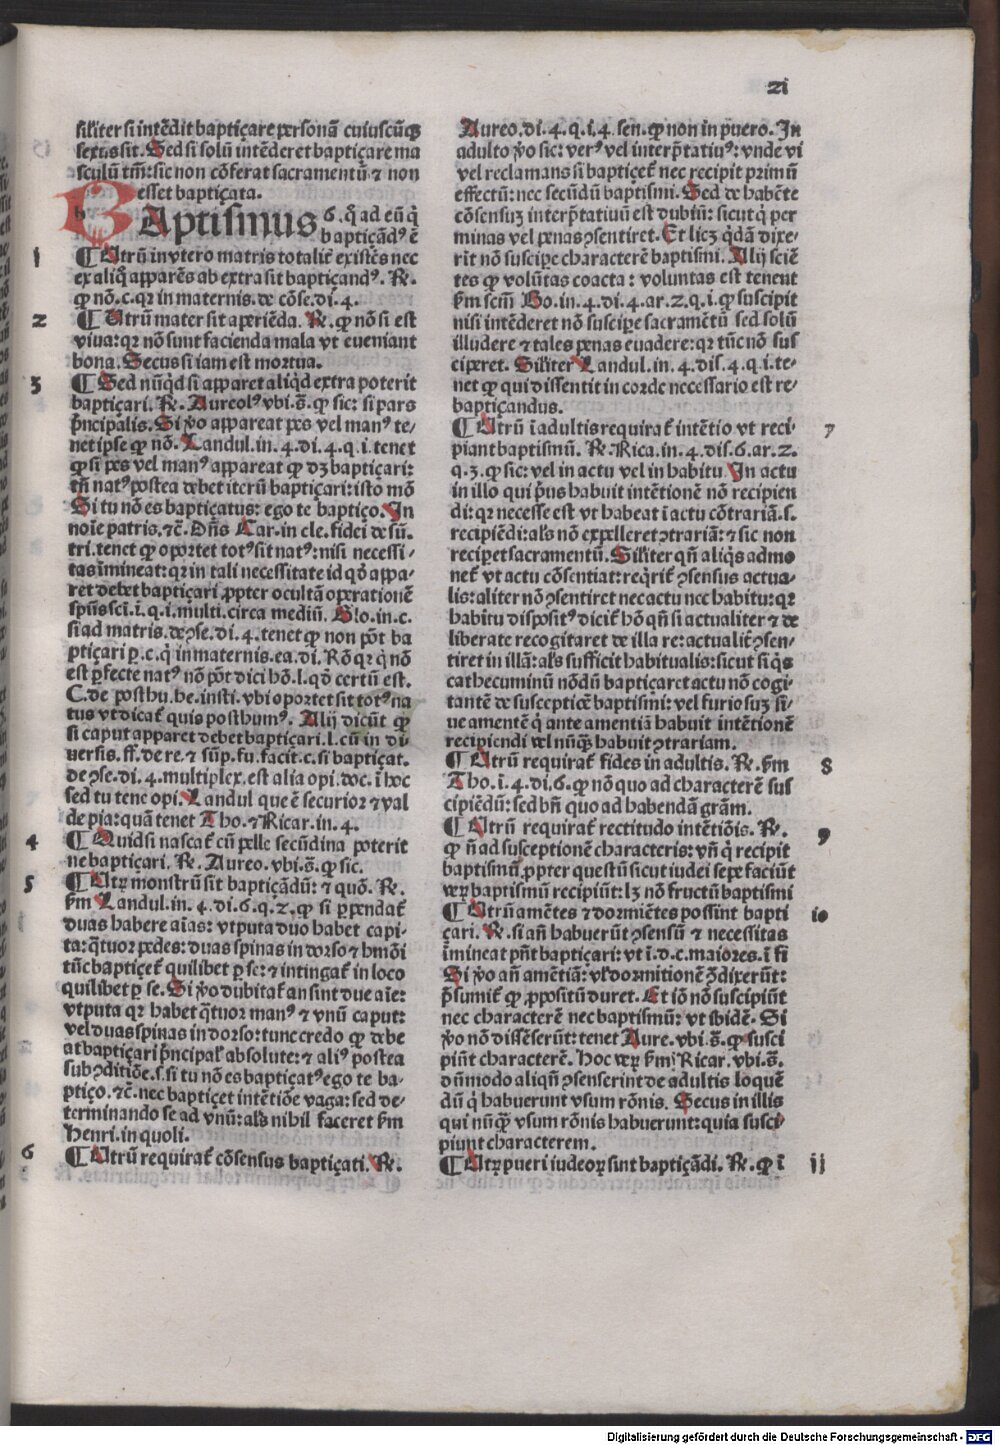 21
siliter si intēdit baptiçare personā cuiuscūqȝ
sexus sit. Sed si solū intēderet baptiçare ma
sculū tm̄: sic non cōferat sacramentū ⁊ non
esset baptiçata.
BAptismus 6. q̄ ad eū q̇
baptiçādꝰ ē
1 ¶ Utrū in vtero matris totalit̄ existēs nec
ex aliq̄ apparēs ab extra sit baptiçandꝰ. R̄.
ꝙ nō. c. qꝛ in maternis. de cōse. di. 4.
2 ¶ Utrū mater sit aperiēda. R̄. ꝙ nō si est
viua: qꝛ nō sunt facienda mala vt eueniant
bona. Secus si iam est mortua.
3 ¶ Sed nūqd si apparet aliqd extra poterit
baptiçari. R̄. Aureolꝰ vbi. s̄. ꝙ sic: si pars
p̄ncipalis. Si v̇o appareat pes vel manꝰ te-
net ipse ꝙ nō. Landul. in. 4. di. 4. q. i. tenet
ꝙ si pes vel manꝰ appareat ꝙ dȝ baptiçari:
tn̄ natꝰ postea debet iterū baptiçari: isto mō
Si tu nō es baptiçatus: ego te baptiço. In
noīe patris. ⁊c̄. Dn̄s Car. in cle. fidei de sū.
tri. tenet ꝙ oportet totꝰ sit natꝰ: nisi necessi-
tas īmineat: qꝛ in tali necessitate id qd̓ appa-
ret debet baptiçari propter ocultā operationē
sp̄ūs sci. i. q. i. multi. circa mediū. Glo. in. c.
si ad matris. de ↄse. di. 4. tenet ꝙ non pōt ba
ptiçari ꝑ. c. q̇ in maternis. ea. di. Rō qꝛ q̇ nō
est perfecte natꝰ nō pōt dici hō. l. qd̓ certū est.
C. de posthu. he. insti. vbi oportet sit totꝰ na
tus vt dicat̄ quis posthumꝰ. Alij dicūt ꝙ
si caput apparet debet baptiçari. l. cū in di
uersis. ff. de re. ⁊ sūp. fu. facit. c. si baptiçat.
de ↄse. di. 4. multiplex. est alia opi. doc. i hoc
sed tu tene opi. Landul que ē securior ⁊ val
de pia: quā tenet Tho. ⁊ Ricar. in. 4.
4 ¶ Quid si nascat̄ cū pelle secūdina poterit
ne baptiçari. R̄. Aureo. vbi. s̄. ꝙ sic.
5 ¶ Utꝝ monstrū sit baptiçādū: ⁊ quō. R̄.
fm̄ Landul. in. 4. di. 6. q. 2. ꝙ si perpendat̄
duas habere aīas: vtputa duo habet capi-
ta: q̄tuor pedes: duas spinas in dorso ⁊ hmōi
tūc baptiçet̄ quilibet ꝑ se: ⁊ intingat̄ in loco
quilibet ꝑ se. Si v̇o dubitat̄ an sint due aīe:
vtputa qꝛ habet q̄tuor manꝰ ⁊ vnū caput:
vel duas spinas in dorso: tunc credo ꝙ debe
at baptiçari p̄ncipal̓ absolute: ⁊ aliꝰ postea
sub ↄditiōe. s. si tu nō es baptiçatꝰ ego te ba-
ptiço. ⁊c̄. nec baptiçet intētiōe vaga: sed de-
terminando se ad vnū: als̓ nihil faceret fm̄
Henri. in quoli.
6 ¶ Utrū requirat̄ cōsensus baptiçati. R̄.
Aureo. di. 4. q. i. 4. sen. ꝙ non in puero. In
adulto v̇o sic: verꝰ vel interp̄tatiuꝰ: vnde vi
vel reclamans si baptiçet̄ nec recipit primū
effectū: nec secūdū baptismi. Sed de habēte
cōsensuȝ interp̄tatiuū est dubiū: sicut q̇ per
minas vel penas ↄsentiret. Et licȝ q̇dā dixe-
rīt nō suscipe characterē baptismi. Alij sciē
tes ꝙ volūtas coacta: voluntas est tenent
fm̄ scm̄ Bo. in. 4. di. 4. ar. 2. q. i. ꝙ suscipit
nisi intēderet nō suscipe sacramētū sed solū
illudere ⁊ tales penas euadere: qꝛ tūc nō sus
ciperet. Siliter Landul. in. 4. dis. 4. q. i. te-
net ꝙ qui dissentit in corde necessario est re-
baptiçandus.
¶ Utrū i adultis requirat̄ intētio vt reci 7
piant baptismū. R̄. Rica. in. 4. dis. 6. ar. 2.
q. 3. ꝙ sic: vel in actu vel in habitu. In actu
in illo qui p̄us habuit intētionē nō recipien
di: qꝛ necesse est vt habeat i actu cōtrariā. s.
recipiēdi: als̓ nō expelleret ↄtrariā: ⁊ sic non
recipet sacramentū. Siliter qn̄ aliq̇s admo
net̄ vt actu cōsentiat: req̇rit̄ ↄsensus actua-
lis: aliter nō ↄsentiret nec actu nec habitu: qꝛ
habitu dispositꝰ dicit̄ hō qn̄ si actualiter ⁊ de
liberate recogitaret de illa re: actualit̄ ↄsen-
tiret in illā: als̓ sufficit habitualis: sicut si q̇s
cathecuminū nōdū baptiçaret actu nō cogi-
tantē de susceptiōe baptismi: vel furiosuȝ si-
ue amentē q̇ ante amentiā habuit intētionē
recipiendi vel nūqȝ habuit ↄtrariam.
¶ Utrū requirat̄ fides in adultis. R̄. fm̄ 8
Tho. i. 4. di. 6. ꝙ nō quo ad characterē sus
cipiēdū: sed bn̄ quo ad habendā grām.
¶ Utrū requirat̄ rectitudo intētiōis. R̄. 9
ꝙ n̄ ad susceptionē characteris: vn̄ q̇ recipit
baptismū propter questū sicut iudei sepe faciūt
veꝝ baptismū recipiūt: lȝ nō fructū baptismi
¶ Utrū amētes ⁊ dormiētes possūnt bapti 10
çari. R̄. si an̄ habuerūt ↄsensū ⁊ necessitas
īmineat pn̄t baptiçari: vt i. d. c. maiores. i fi
Si v̇o an̄ amētiā: vl̓ dormitionē ↄdixerūt:
p̄sumit̄ ꝙ propositū duret. Et iō nō suscipiūt
nec characterē nec baptismū: vt ibidē. Si
v̇o nō dissēserūt: tenet Aure. vbi. s̄. ꝙ susci
piūt characterē. Hoc veꝝ fm̄ Ricar. vbi. s̄.
dūmodo aliqn̄ ↄsenserint de adultis loquē
dū q̇ habuerunt vsum rōnis. Secus in illis
qui nūqȝ vsum rōnis habuerunt: quia susci-
piunt characterem.
¶ Utꝝ pueri iudeoꝝ sint baptiçādi. R̄. ꝙ i 11
Digitalisierung gefördert durch die Deutsche Forschungsgemeinschaft - DFG